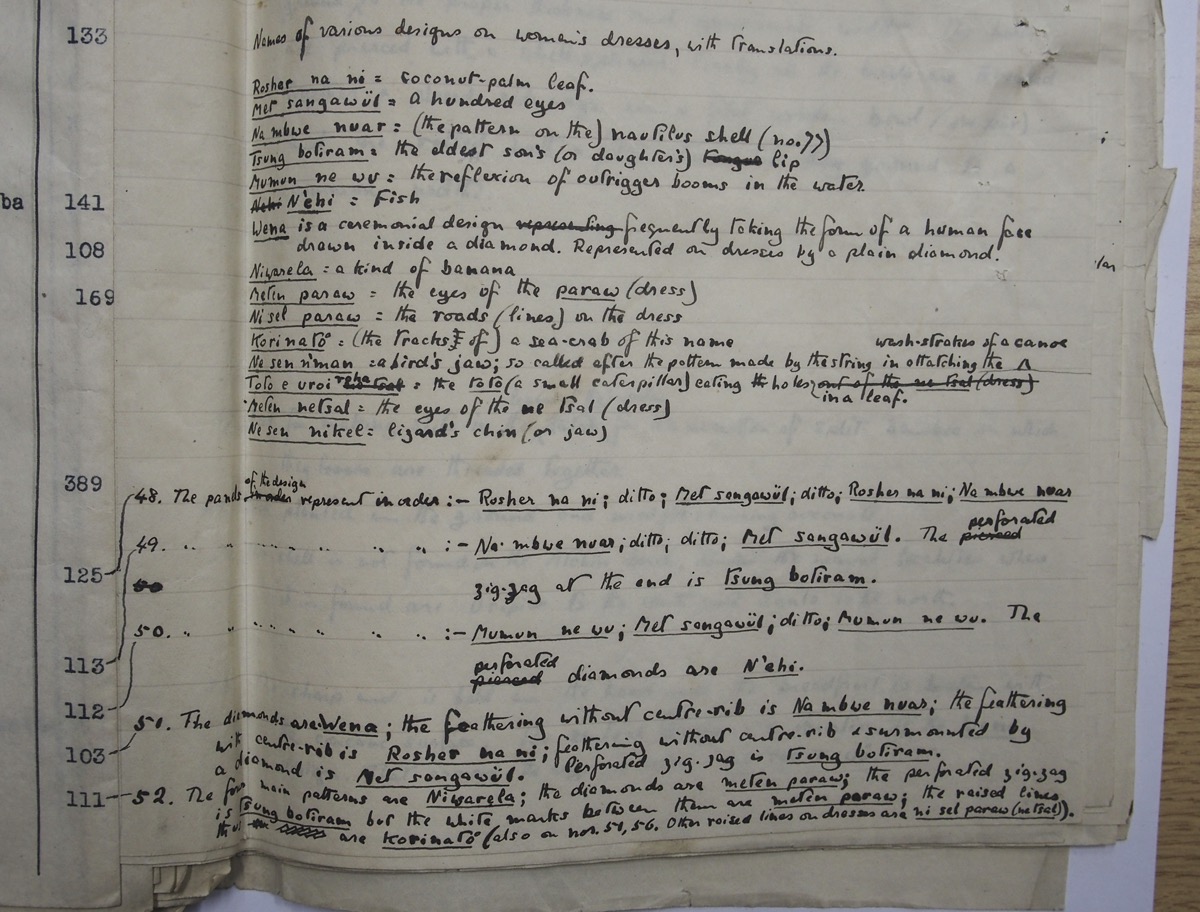 133
Names of various designs on women's dresses, with translations.
Rosher na ni = coconut-palm leaf.
Met sangawül = a hundred eyes
Na mbwe nuar = (the pattern on the) nautilus shell (no. 77)
Tsung botiram = the eldest son's (or daughter's) tongue lip
Mumun ne wu = the reflexion of outrigger booms in the water
ba 141
Nehi N'ehi = Fish
Wena is a ceremonial design representing frequently taking the form of a human face
108
drawn inside a diamond. Represented on dresses by a plain diamond.
Niwarela = a kind of banana
169
Meten paraw = the eyes of the paraw (dress)
Ni sel paraw = the roads (lines) on the dress
Korinatö = (the tracks of) a sea-crab of this name
wash-strakes of a canoe
Ne sen n'man = a bird's jaw; so called after the pattern made by the string in attatching the ^
Toto e uroi = the toto (a small caterpillar) eating holes out of the ne tsal (dress)
in a leaf.
Meten netsal = the eyes of the ne tsal (dress)
Ne sen nikel = lizard's chin (or jaw)
389
of the design
48. The pands in order represent in order :- Rosher na ni; ditto; Met sangawül; ditto; Rosher na ni; Na mbwe nuar
perforated
49. " " " " " :- Na mbwe nuar; ditto; ditto; Met sangawül. The pierced
125
50
zig-zag at the end is Tsung botiram.
50. " " " " " :- Mumun ne wu; Met sangawül; ditto; Mumun ne wu. The
113
perforated
pierced diamonds are N'ehi.
112
51. The diamonds are Wena; the feathering without centre-rib is Na mbwe nuar; the feathering
103
with centre-rib is Rosher na ni; feathering without centre-rib & surmounted by
a diamond is Met sangawül. Perforated zig-zag is Tsung botiram.
111
52. The four main patterns are Niwarela; the diamonds are meten paraw; the perforated zig-zag
is Tsung botiram but the white marks between them are meten paraw; the raised lines
are Korinatö (also on nos. 54, 56. Other raised lines on dresses are ni sel paraw (netsal)).